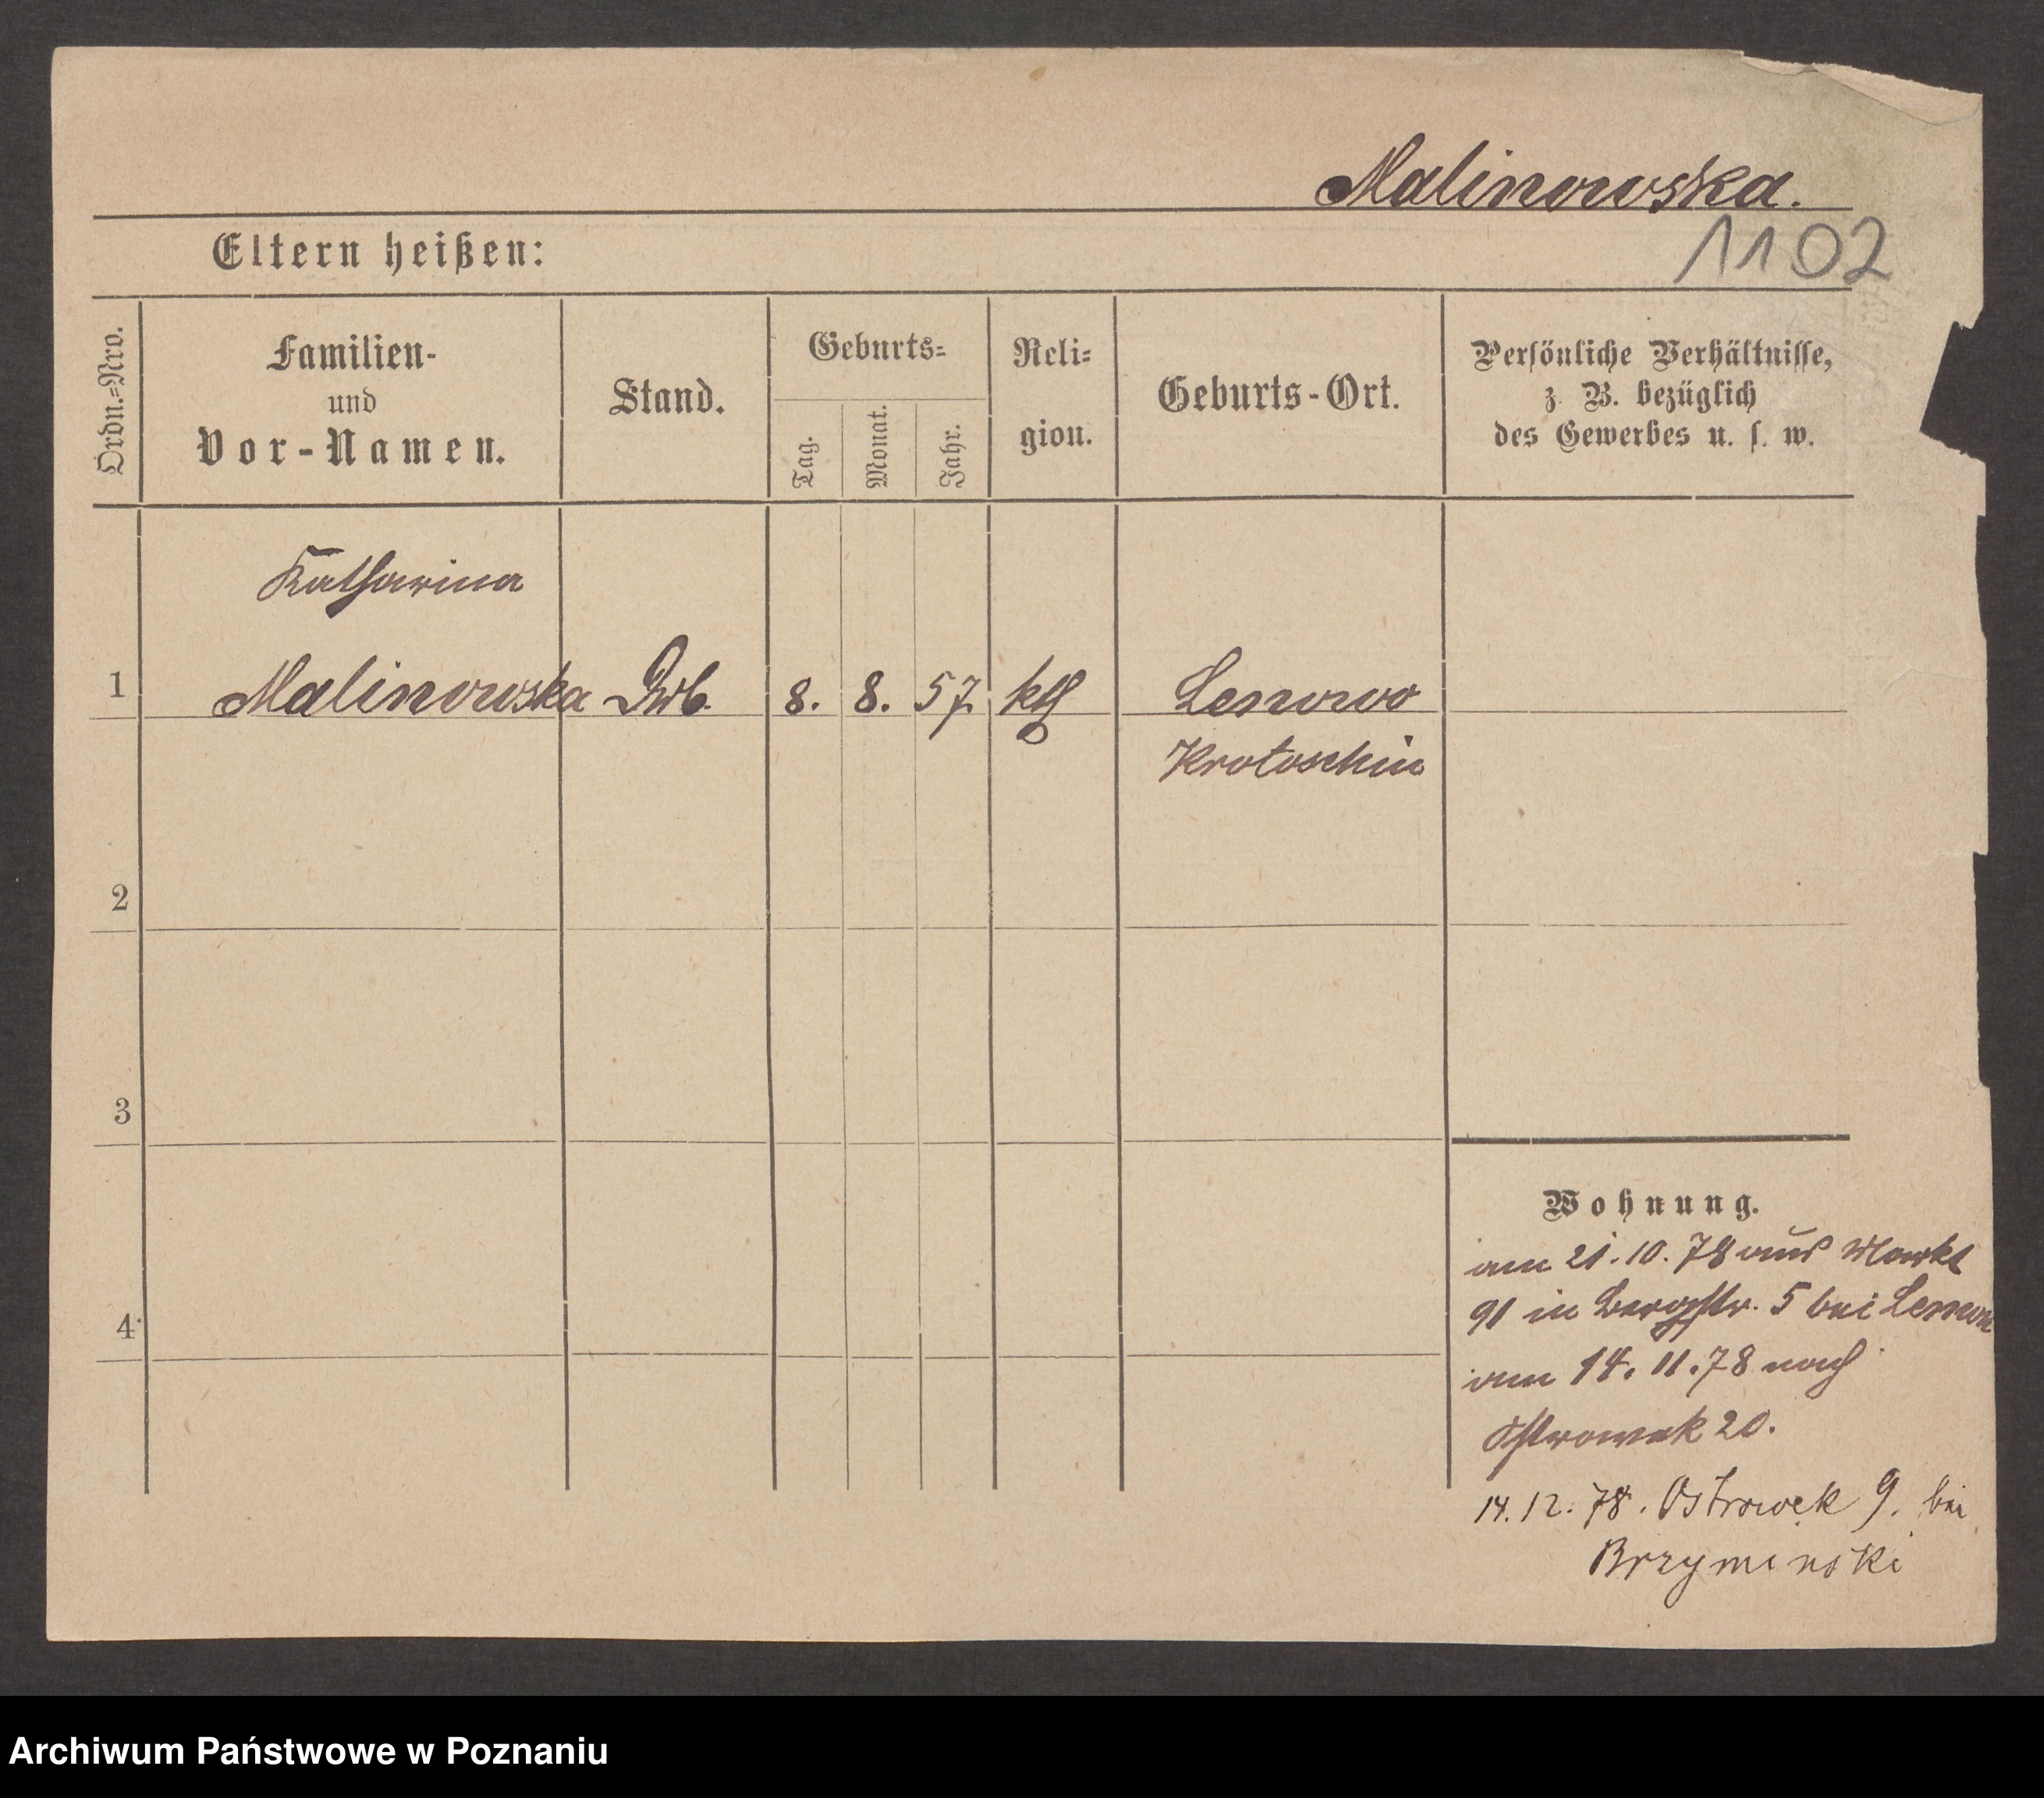 Malinowska.
1102
Eltern heißen:
Ordn.=Nro.
Familien-
und
Vor-Namen.
Stand.
Geburts=
Tag.
Monat.
Jahr.
Reli=
gion.
Geburts-Ort.
Persönliche Verhältnisse,
z. B. bezüglich
des Gewerbes u. s. w.
Katharina
1 Malinowska 8. 8. 57. kth Lenowo
Krotoschin
2
3
4
Wohnung.
am 21. 10. 78 aus Markt
91 in Bergstr. 5 bei
am 14. 11. 78 nach
Ostrowek 20.
14. 12. 78. Ostrowek 9. bei
Brzyminski
Archiwum Państwowe w Poznaniu